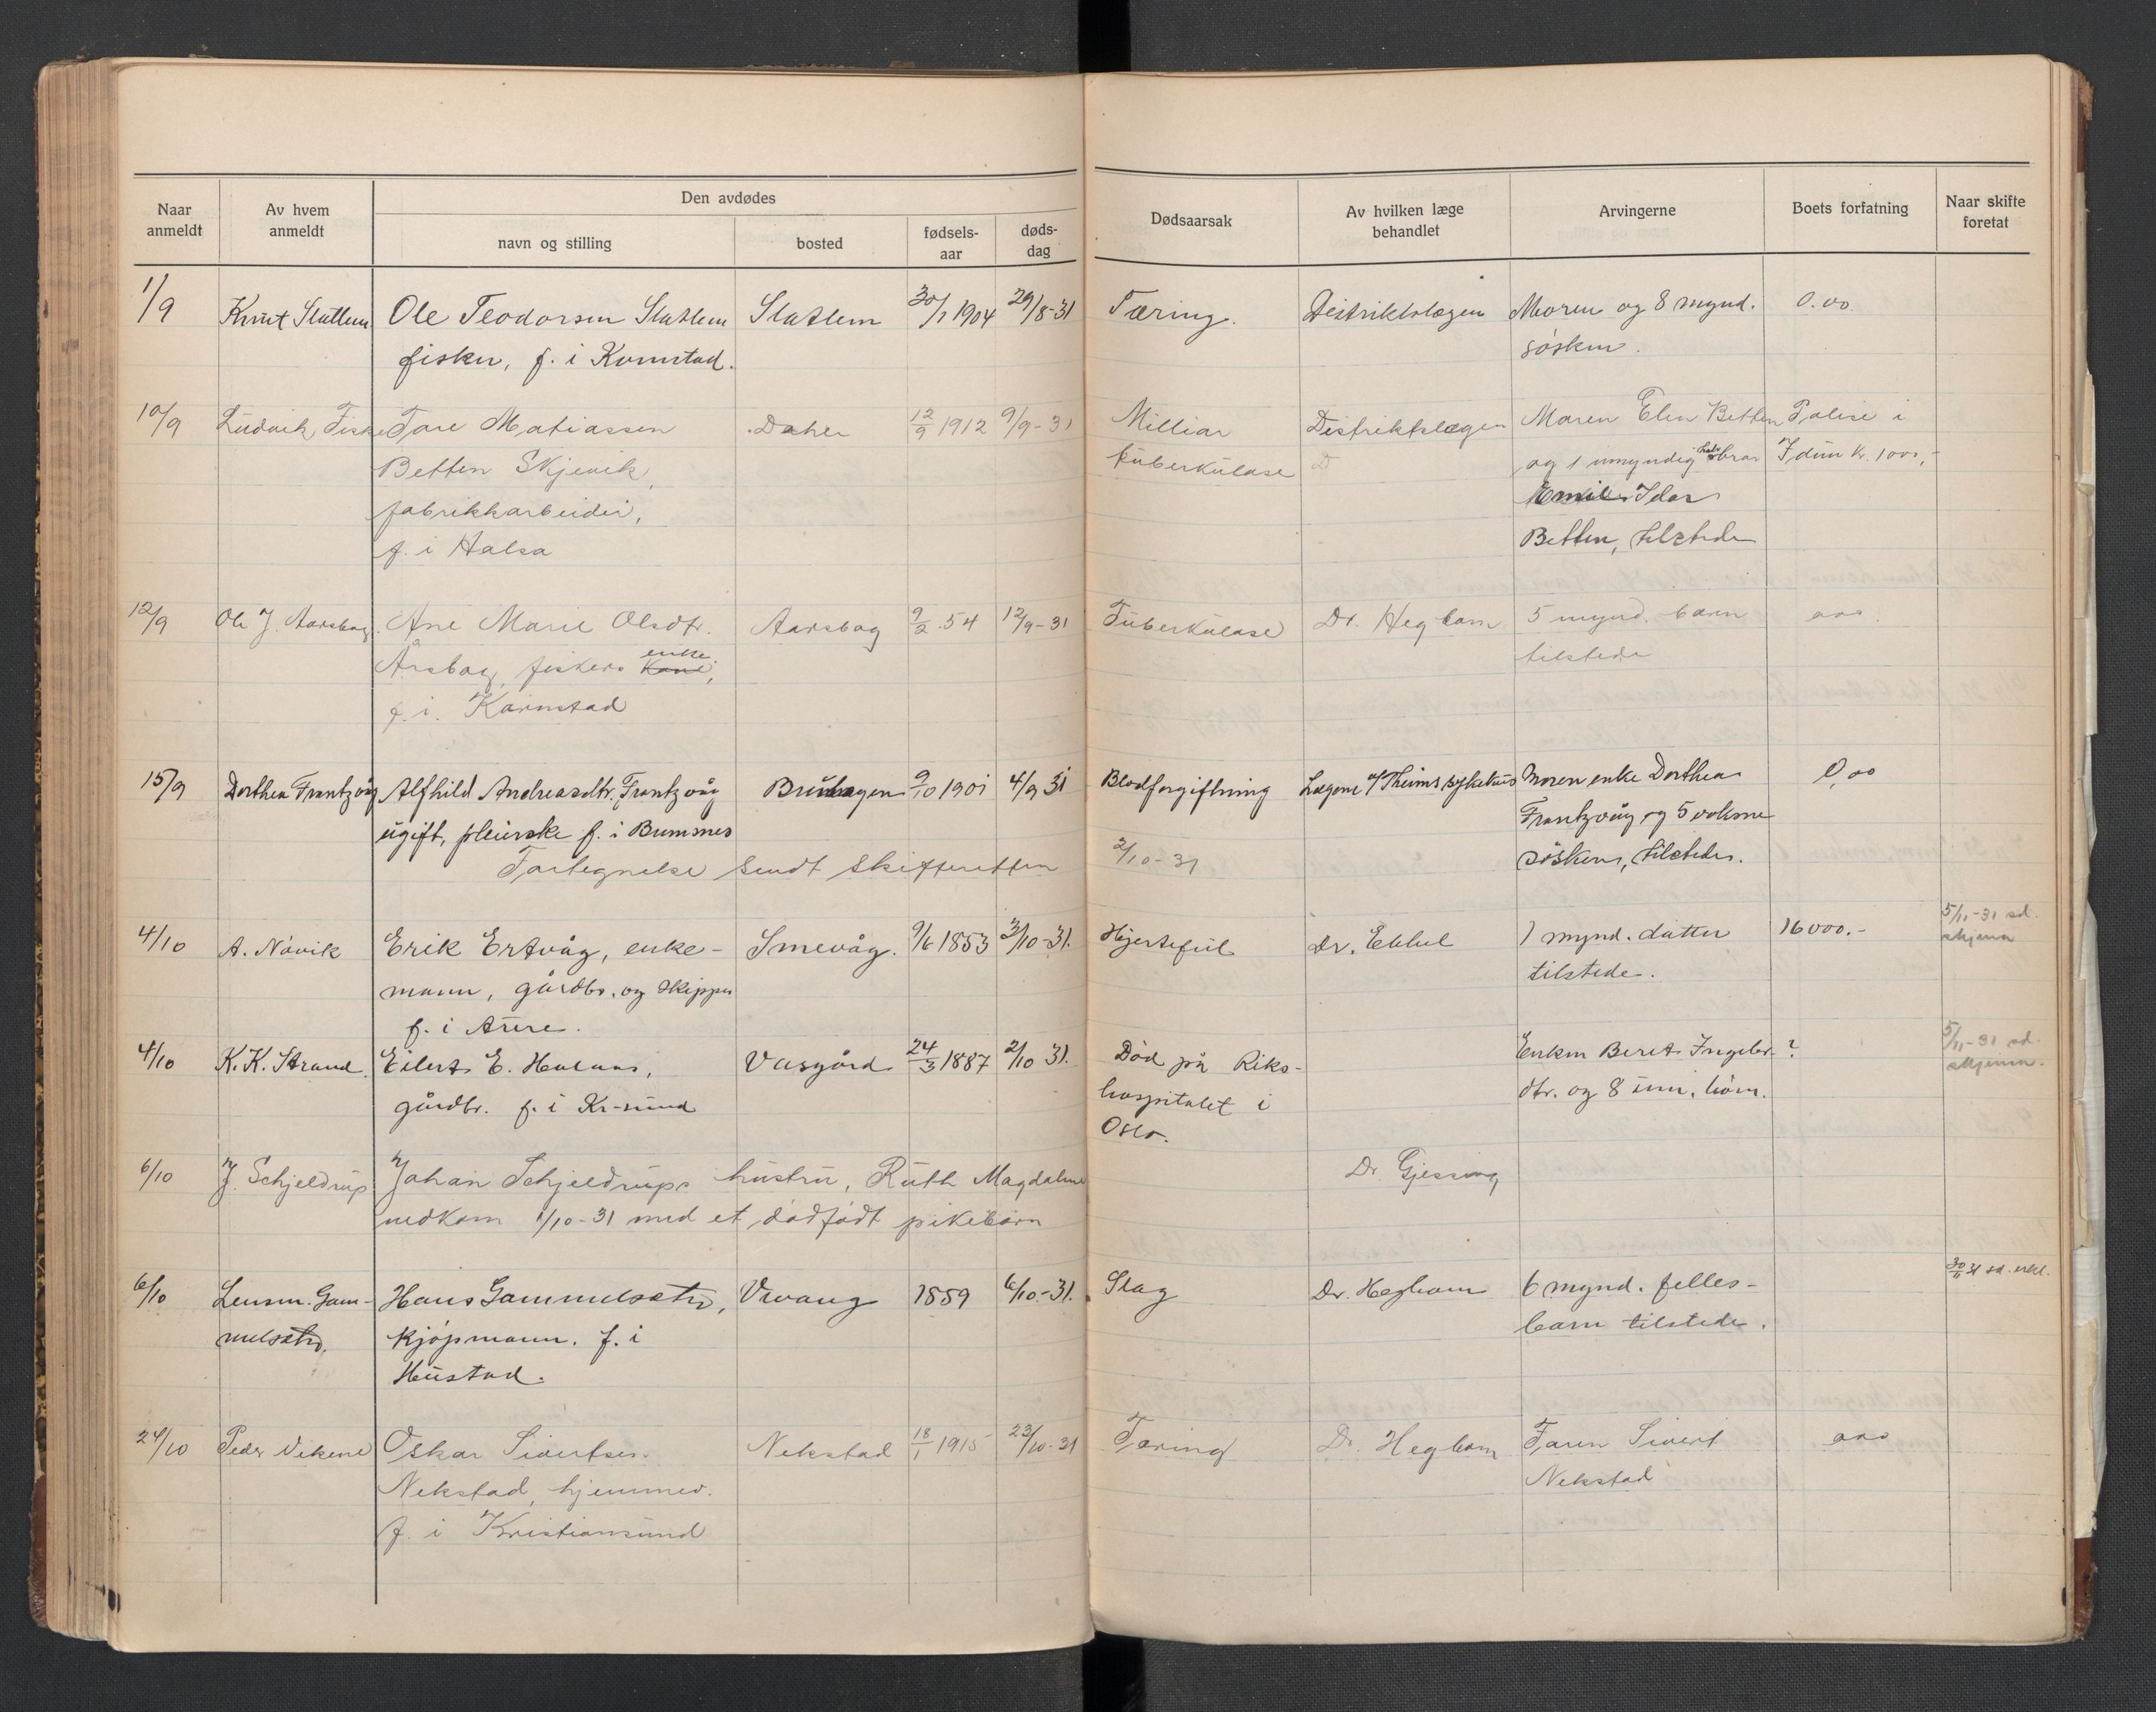 Naar anmeldt | Av hvem anmeldt | Den avdødes | Dødsaarsak | Av hvilken læge behandlet | Arvingerne | Boets forfatning | Naar skifte foretat
navn og stilling | bosted | fødsels-aar | døds-dag
1/9 | Knut Slatlem | Ole Teodorsen Slatlem | Slatlem | 30/1 1904 | 29/8-31 | Tæring. | Distriktslægen | Moren og 8 mynd. | 0.00
fisker, f. i Kornstad. | søsken.
10/9 | Ludvik Fiske | Tore Matiassen | Daher | 12/9 1912 | 9/9-31 | Milliar | Distriktslægen | Maren Elen Betten | Polise i
Betten Skjevik, | tuberkulose | D | og 1 umyndig halvbror | Idun kr. 1000,-
fabrikkarbeider, | Emil Idar
f. i Halsa | Betten, tilstede
12/9 | Ole J. Aarsbog | Ane Marie Olsdtr. | Aarsbog | 9/2 54 | 12/9-31 | Tuberkulose | Dr. Hegbom | 5 mynd. barn | 000
Årsbog, fiskers kone enke, | tilstede
f. i. Kornstad
15/9 | Dorthea Frantzvåg | Alfhild Andreasdtr. Frantzvåg | Bruhagen | 9/10 1901 | 4/9 31 | Blodforgiftning | Lægene v/ Theims sykehus | Moren enke Dorthea | 0,00
ugift, pleierske f. i Bremsnes | Frantzvåg og 5 voksne
Fortegnelse sendt skifteretten | 2/10-31 | søsken, tilstede.
4/10 | A. Nåvik | Erik Ertvåg, enke- | Smevåg. | 9/6 1853 | 3/10-31. | Hjertefeil | Dr. | 1 mynd. datter | 16000.- | 5/11-31 sd. skjema
mann, gårdbr. og skipper | tilstede.
f. i Aure.
4/10 | K. K. Strand. | Eilert E. | Vasgård | 24/3 1887 | 2/10 31. | Död på Riks- | Enken Berit Ingebr- | ? | 5/11-31 sd. skjema.
gårdbr. f. i Kr-sund | hospitalet i | dtr. og 8 um. börn.
Oslo.
6/10 | J. Schjeldrup | Johan Schjeldrups hustru, Ruth Magdalene | Dr. Gjessing
nedkom 1/10-31 med et dödfödt pikebarn
6/10 | Lensm. Gam- | Hans Gammelsætr, | Vevang | 1859 | 6/10-31. | Slag | Dr. Hegbom | 6 mynd. felles- | 30/11 31 sd. erkl.
melsætr. | kjøpmann. f. i | barn tilstede.
Hustad.
24/10 | Peder Vikene | Oskar Sivertsen | Nekstad | 18/1 1915 | 23/10-31 | Tæring | Dr. Hegbom | Faren Sivert | 000
Nekstad, hjemmev. | Nekstad
f. i Kristiansund